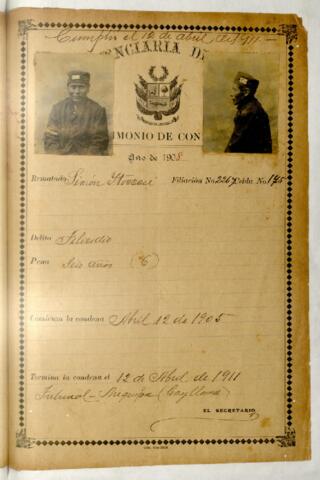 Cumplió el 12 de abril de 1911
NCIARIA D
IMONIO DE CON
Año de 1908
Rematado Simón Filiación No. 2267 Celda No. 145
Delito
Pena Seis años (6)
Comienza la condena Abril 12 de 1905
Termina la condena el 12 de Abril de 1911
Tribunal - Arequipa (Caylloma)
EL SECRETARIO